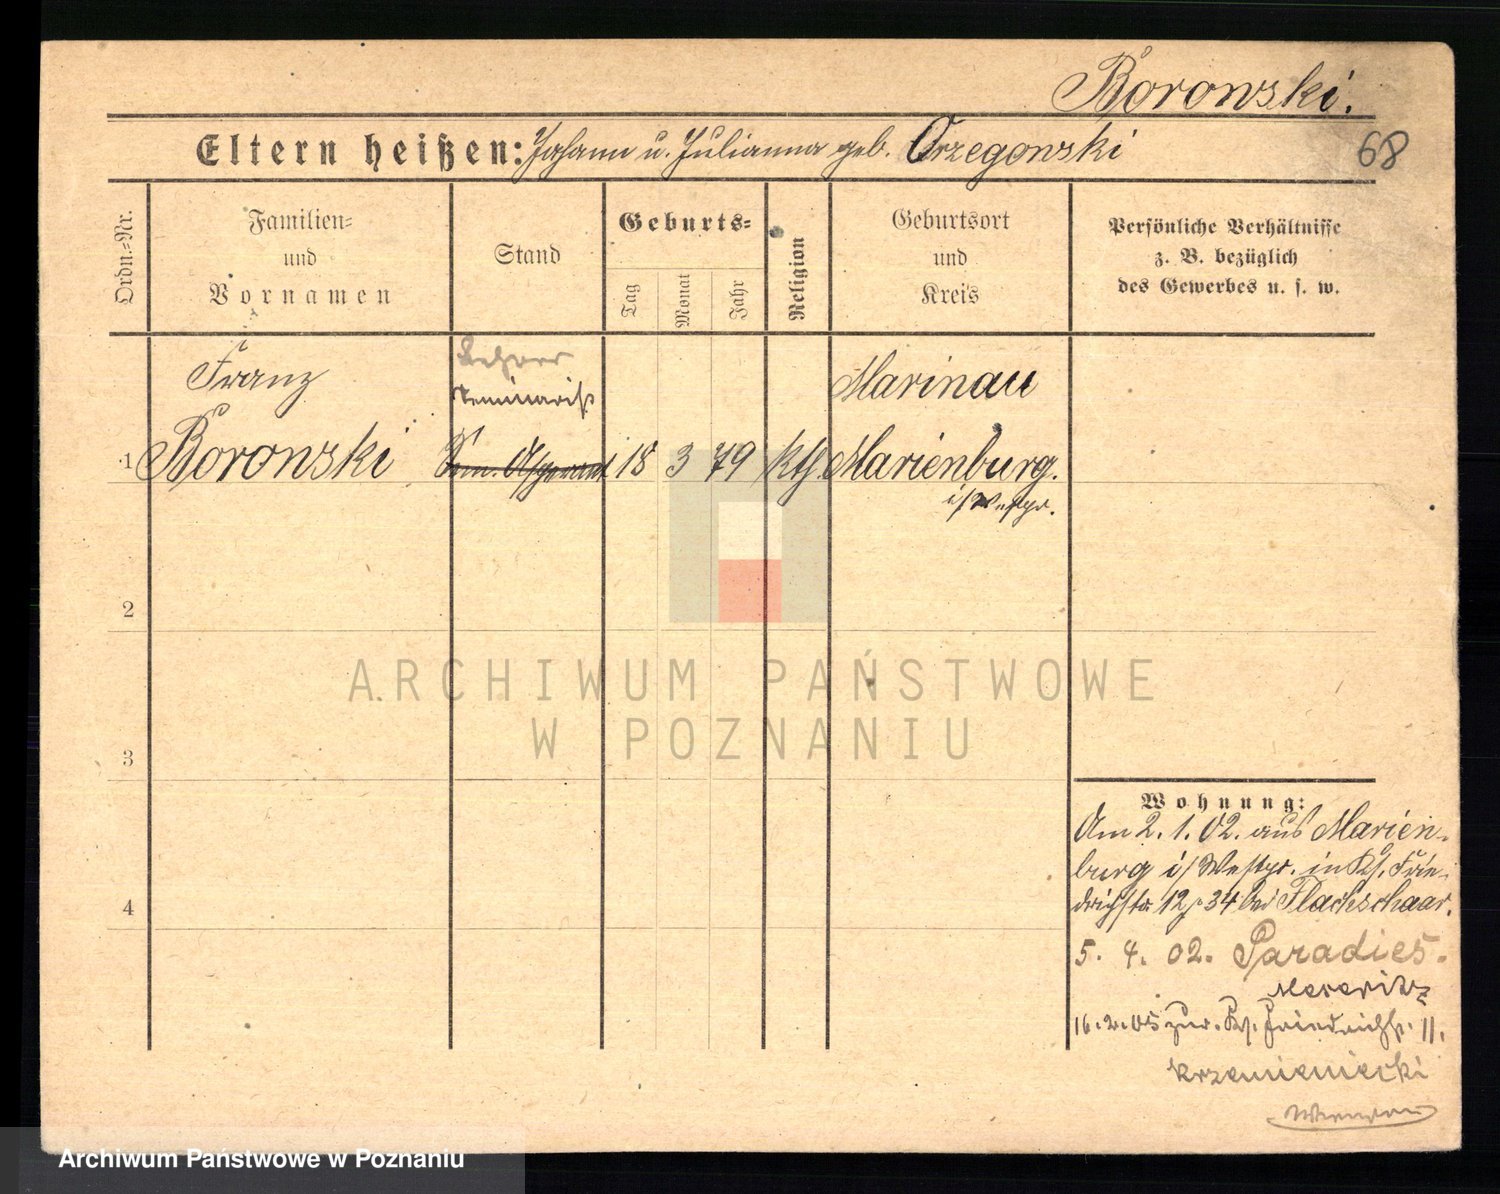 Borowski.
68
Eltern heißen: Johann u. Julianna geb. Orzegowski
Ordn.=Nr.
Familien=
und
Vornamen
Stand
Geburts=
Tag
Monat
Jahr
Religion
Geburtsort
und
Kreis
Persönliche Verhältnisse
z. B. bezüglich
des Gewerbes u. s. w.
Franz
Lehrer
Seminarist
Marinau
1 Borowski Sem. Aspirant 18 3 79 kth. Marienburg.
i/Westpr.
2
3
4
Wohnung:
Am 2. 1. 02. aus Marien-
burg i/Westpr. in Frie-
drichstr. 34 bei Flachshaar.
5. 4. 02. Paradies.
Meseritz
16. 2. 05 zur. Friedrichstr. 11.
Krzemieniecki
ARCHIWUM PAŃSTWOWE
W POZNANIU
Archiwum Państwowe w Poznaniu